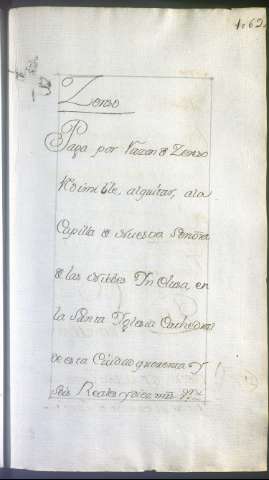 162.
Zenso
Paga por Razon de Zenso
Redimible, al quitar, ala
Capilla de Nuestra Señora
de las Niebes Yn Clusa en
la Santa Yglesia Cathedral
de esta Ciudad quarenta Y
Seis Reales y doze mrs Vn